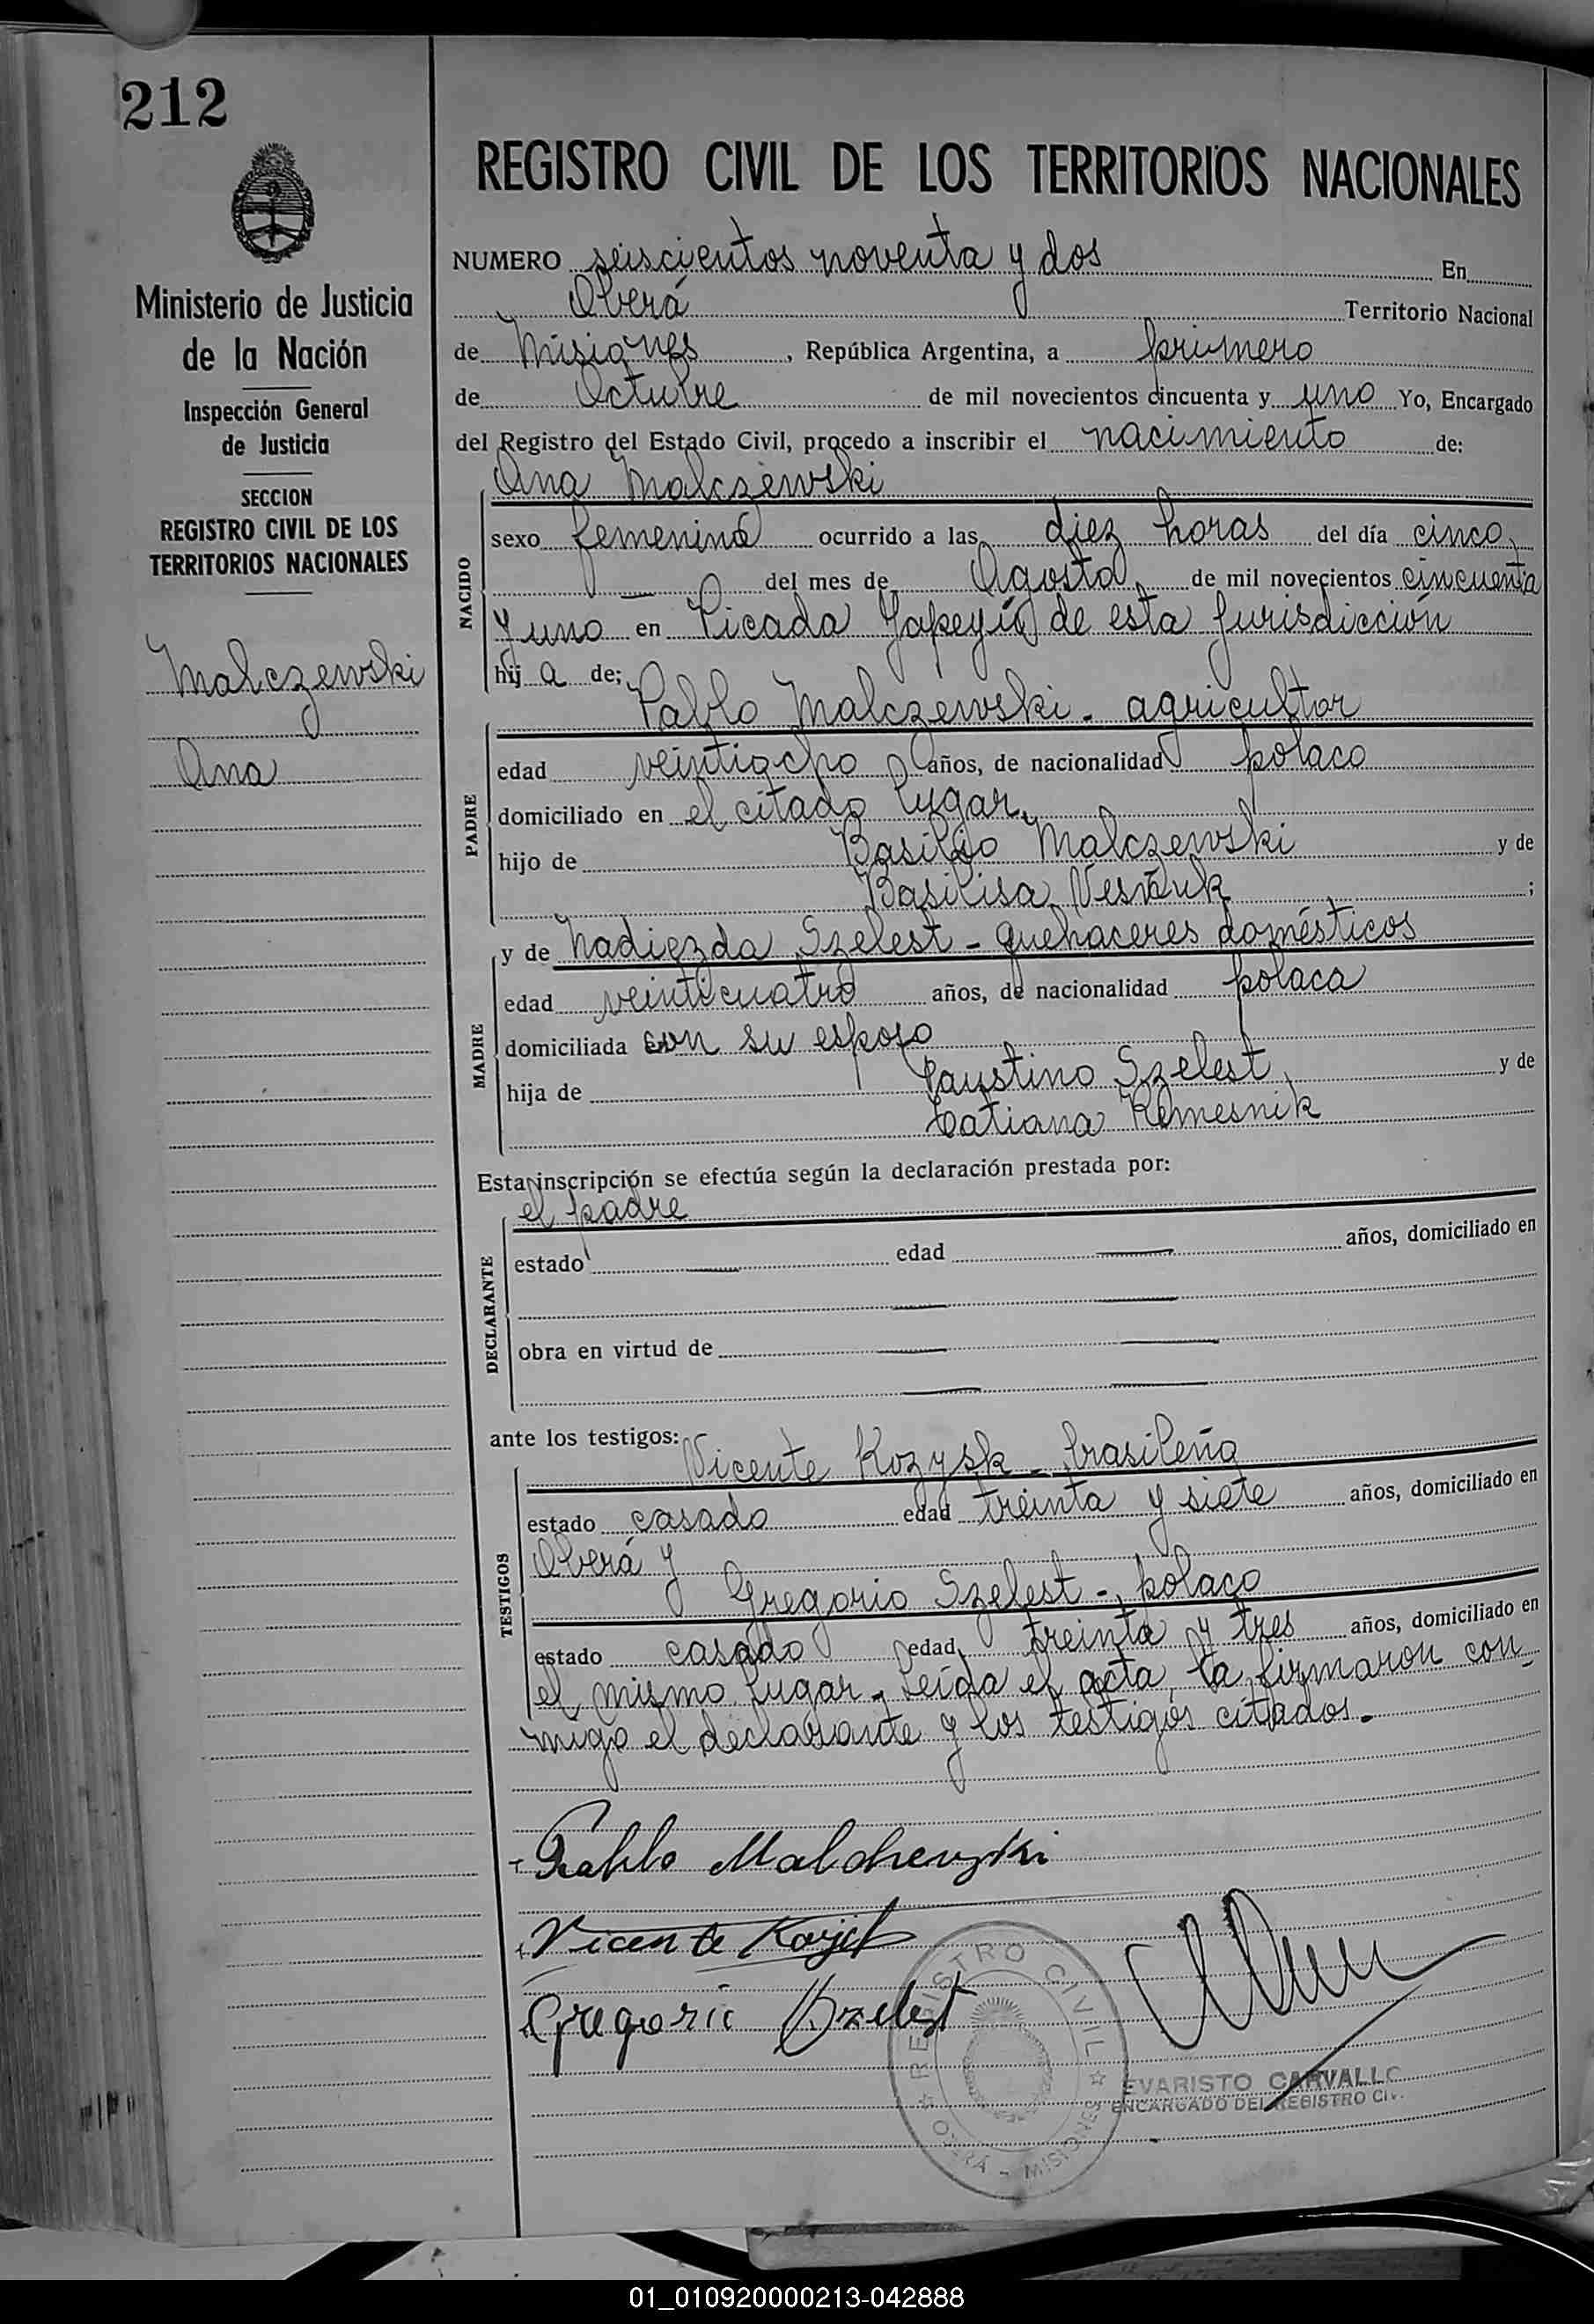 212
REGISTRO CIVIL DE LOS TERRITORIOS NACIONALES
Ministerio de Justicia
de la Nación
Inspección General
de Justicia
SECCION
REGISTRO CIVIL DE LOS
TERRITORIOS NACIONALES
Malczewski
Ana
NUMERO seiscientos noventa y dos En
Oberá Territorio Nacional
de Misiones, República Argentina, a primero
de Octubre de mil novecientos cincuenta y uno Yo, Encargado
del Registro del Estado Civil, procedo a inscribir el nacimiento de:
Ana Malczewski
NACIDO
sexo femenino ocurrido a las diez horas del día cinco
— del mes de Agosto, de mil novecientos cincuenta
y uno en Picada Yapeyú de esta jurisdicción
hij a de;
Pablo Malczewski - agricultor
PADRE
edad veintiocho años, de nacionalidad polaco
domiciliado en el citado lugar,
hijo de Basilio Malczewski y de
Basilisa ;
y de Nadiezda Szelest - quehaceres domésticos
MADRE
edad veinticuatro años, de nacionalidad polaca
domiciliada con su esposo
hija de Faustino Szelest y de
Tatiana Remesnik
Esta inscripción se efectúa según la declaración prestada por:
el padre
DECLARANTE
estado — edad — años, domiciliado en
— —
obra en virtud de — —
— —
ante los testigos:
Vicente Kozysk - brasileño
TESTIGOS
estado casado edad treinta y siete años, domiciliado en
Oberá y
Gregorio Szelest - polaco
estado casado edad treinta y tres años, domiciliado en
el mismo lugar. Leída el acta, la firmaron con-
migo el declarante y los testigos citados.
Pablo Malchewski
Vicente
Gregorio Szelest
REGISTRO CIVIL
OBERÁ - MISIONES
EVARISTO CARVALLO
ENCARGADO DEL REGISTRO CIV.
01_010920000213-042888